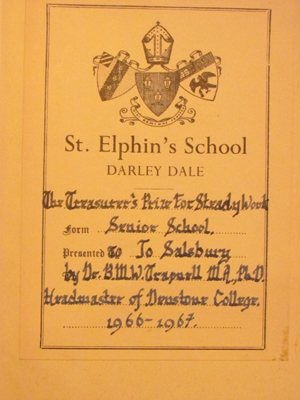 St. Elphin's School
DARLEY DALE
The Treasurer's Prize For Steady Work
Form Senior School.
Presented to Jo Salsbury
by Dr. B.M.W. Trapnell M.A, Ph.D.
Headmaster of Denstone College.
1966-1967.